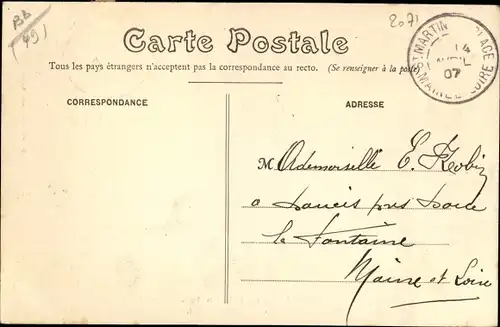 BB
(49)
2071
Carte Postale
Tous les pays étrangers n'acceptent pas la correspondance au recto. (Se renseigner à la poste)
ST MARTIN PLACE
14
AVRIL
07
MAINE LOIRE
CORRESPONDANCE
ADRESSE
Mademoiselle E.
a près
la Fontaine
Maine et Loire